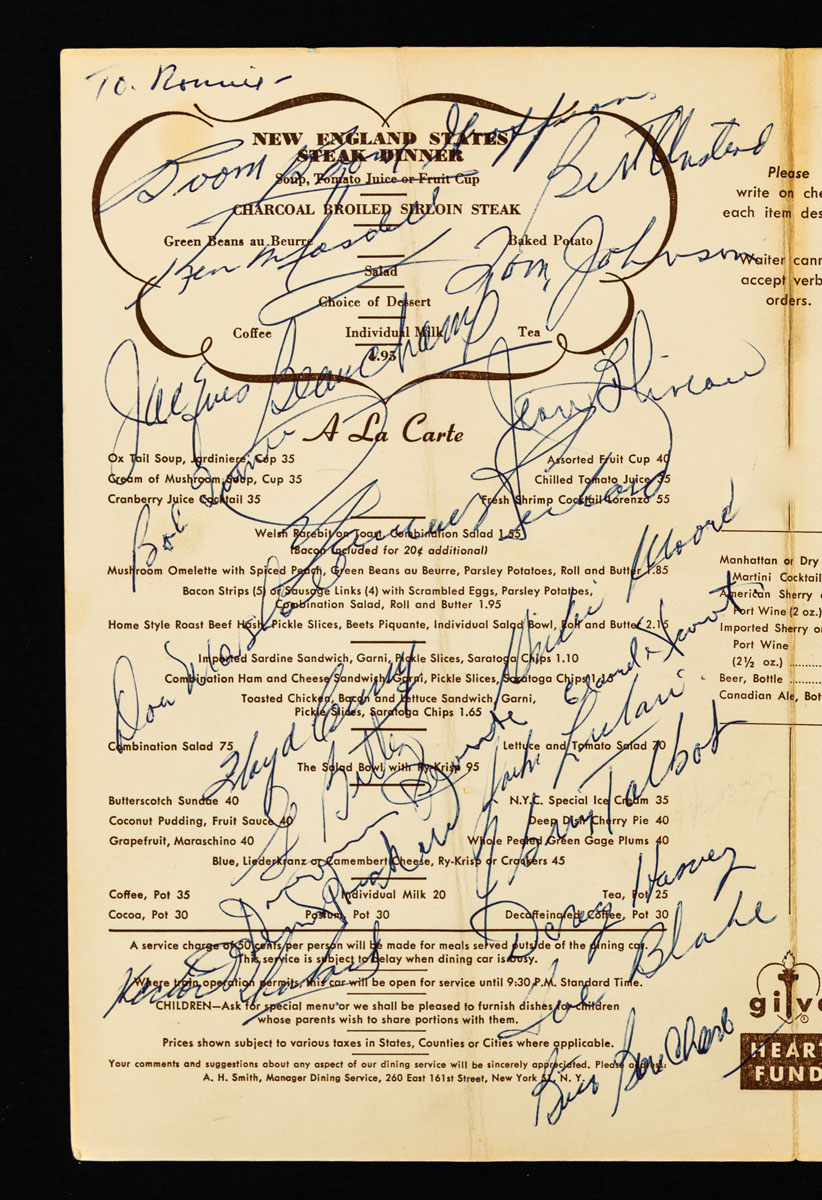 To. Ronnie-
NEW ENGLAND STATES
STEAK DINNER
Boom Boom Geoffrion
Bert Olmstead
Soup, Tomato Juice or Fruit Cup
CHARCOAL BROILED SIRLOIN STEAK
Green Beans au Beurre
Baked Potato
Ken Mosdell
Tom Johnson
Salad
Choice of Dessert
Coffee
Individual Milk
Tea
4.95
Jacques Beauchamp
Jean Béliveau
A La Carte
Ox Tail Soup, Jardiniere, Cup 35
Assorted Fruit Cup 40
Cream of Mushroom Soup, Cup 35
Chilled Tomato Juice 35
Cranberry Juice Cocktail 35
Fresh Shrimp Cocktail Lorenzo 55
Bob
Welsh Rarebit on Toast, Combination Salad 1.55
(Bacon included for 20¢ additional)
Mushroom Omelette with Spiced Peach, Green Beans au Beurre, Parsley Potatoes, Roll and Butter 1.85
Bacon Strips (5) or Sausage Links (4) with Scrambled Eggs, Parsley Potatoes,
Combination Salad, Roll and Butter 1.95
Home Style Roast Beef Hash, Pickle Slices, Beets Piquante, Individual Salad Bowl, Roll and Butter 2.15
Dickie Moore
Imported Sardine Sandwich, Garni, Pickle Slices, Saratoga Chips 1.10
Combination Ham and Cheese Sandwich, Garni, Pickle Slices, Saratoga Chips
Toasted Chicken, Bacon and Lettuce Sandwich, Garni,
Pickle Slices, Saratoga Chips 1.65
Don Marshall
Floyd Curry
Combination Salad 75
Lettuce and Tomato Salad 70
The Salad Bowl with Ry-Krisp 95
Butterscotch Sundae 40
N.Y.C. Special Ice Cream 35
Coconut Pudding, Fruit Sauce 40
Deep Dish Cherry Pie 40
Grapefruit, Maraschino 40
Whole Peeled Green Gage Plums 40
Blue, Liederkranz or Camembert Cheese, Ry-Krisp or Crackers 45
Jean Guy Talbot
Coffee, Pot 35
Individual Milk 20
Tea, Pot 25
Cocoa, Pot 30
Postum, Pot 30
Decaffeinated Coffee, Pot 30
Doug Harvey
A service charge of 50 cents per person will be made for meals served outside of the dining car.
This service is subject to delay when dining car is busy.
Toe Blake
Where train operation permits, this car will be open for service until 9:30 P.M. Standard Time.
CHILDREN—Ask for special menu or we shall be pleased to furnish dishes for children
whose parents wish to share portions with them.
Prices shown subject to various taxes in States, Counties or Cities where applicable.
Butch Bouchard
Your comments and suggestions about any aspect of our dining service will be sincerely appreciated. Please address:
A. H. Smith, Manager Dining Service, 260 East 161st Street, New York 51, N. Y.
Please
write on
each item
Waiter
accept
orders.
Manhattan or Dry
Martini Cocktail
American Sherry
Port Wine (2 oz.)
Imported Sherry
Port Wine
(2½ oz.)
Beer, Bottle
Canadian Ale,
HEART
FUND